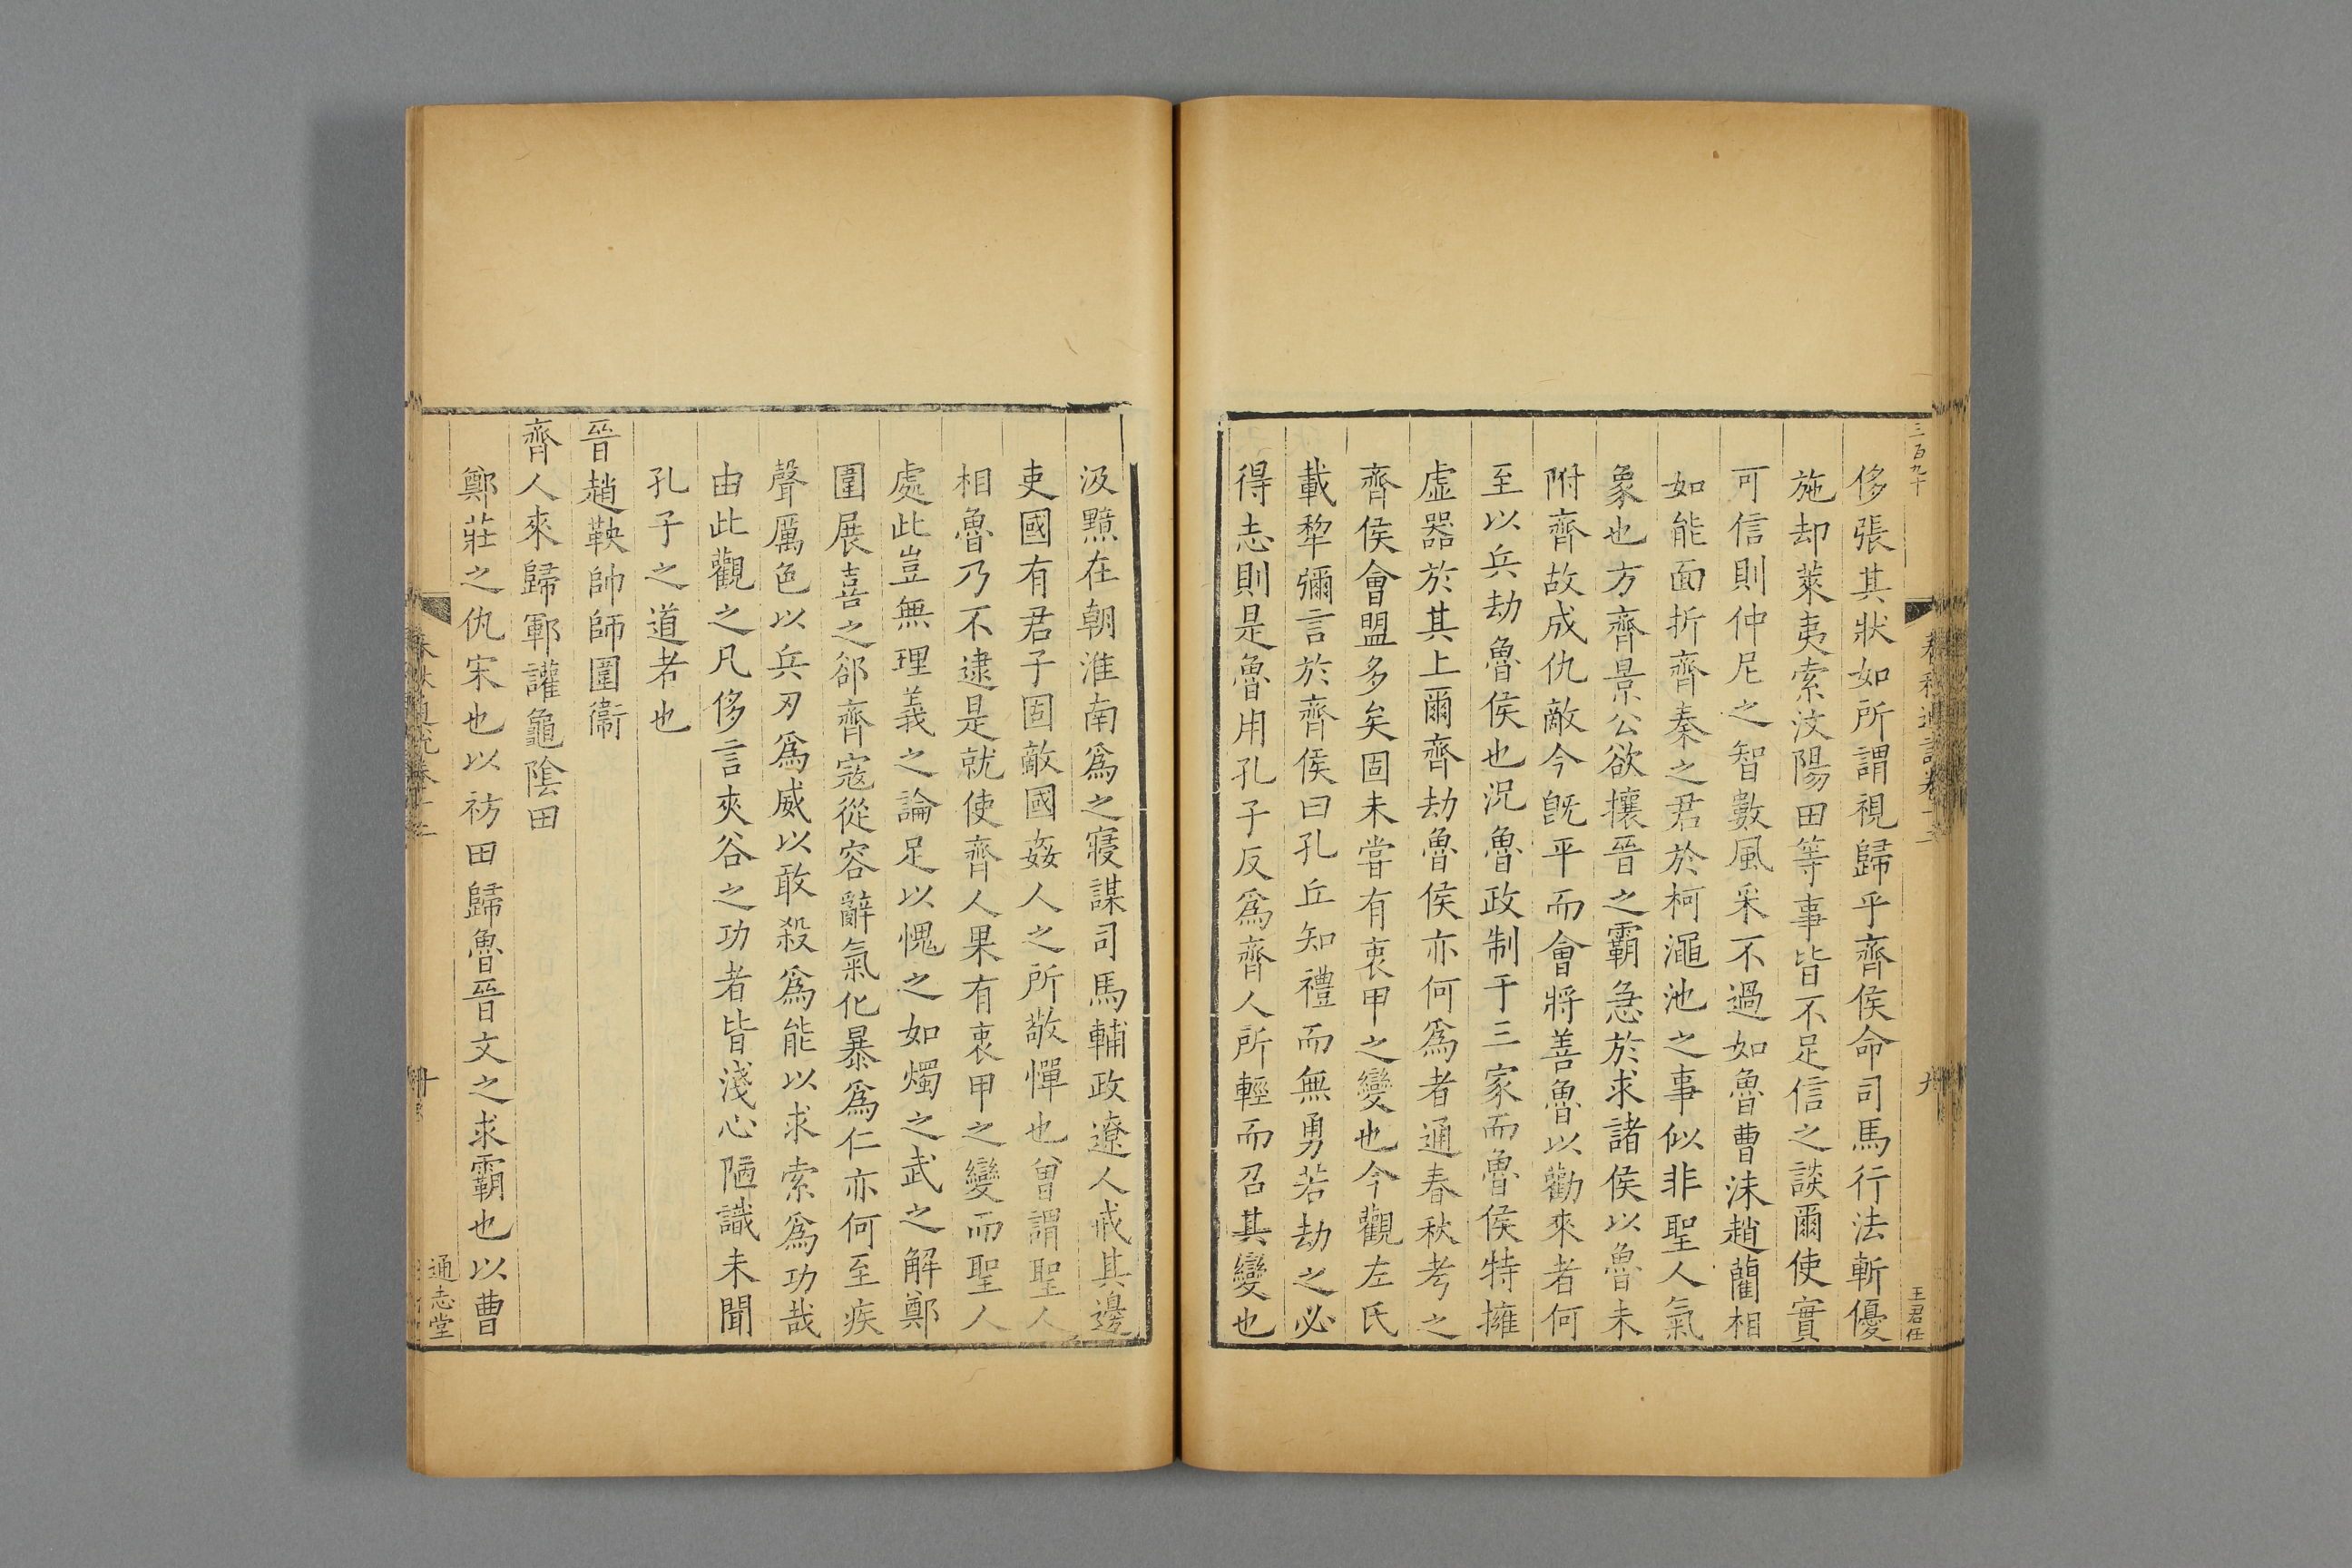 三百九十
春秋通說卷十二
九
王君任
侈張其狀如所謂視歸乎齊侯命司馬行法斬優
施却萊夷索汶陽田等事皆不足信之談爾使實
可信則仲尼之智數風采不過如魯曹沬趙藺相
如能面折齊秦之君於柯澠池之事似非聖人氣
象也方齊景公欲攘晉之霸急於求諸侯以魯未
附齊故成仇敵今旣平而會將善魯以勸來者何
至以兵劫魯侯也況魯政制于三家而魯侯特擁
虛器於其上爾齊劫魯侯亦何爲者通春秋考之
齊侯會盟多矣固未甞有衷甲之變也今觀左氏
載犂彌言於齊侯曰孔丘知禮而無勇若劫之必
得志則是魯用孔子反爲齊人所輕而召其變也
汲黯在朝淮南爲之寢謀司馬輔政遼人戒其邊
吏國有君子固敵國姦人之所敬憚也曾謂聖人
相魯乃不逮是就使齊人果有衷甲之變而聖人
處此豈無理義之論足以愧之如燭之武之解鄭
圍展喜之郤齊寇從容辭氣化暴爲仁亦何至疾
聲厲色以兵刃爲威以敢殺爲能以求索爲功哉
由此觀之凡侈言夾谷之功者皆淺心陋識未聞
孔子之道者也
晉趙鞅帥師圍衞
齊人來歸鄆讙龜陰田
鄭莊之仇宋也以祊田歸魯晉文之求霸也以曹
春秋通說卷十二
十
通志堂